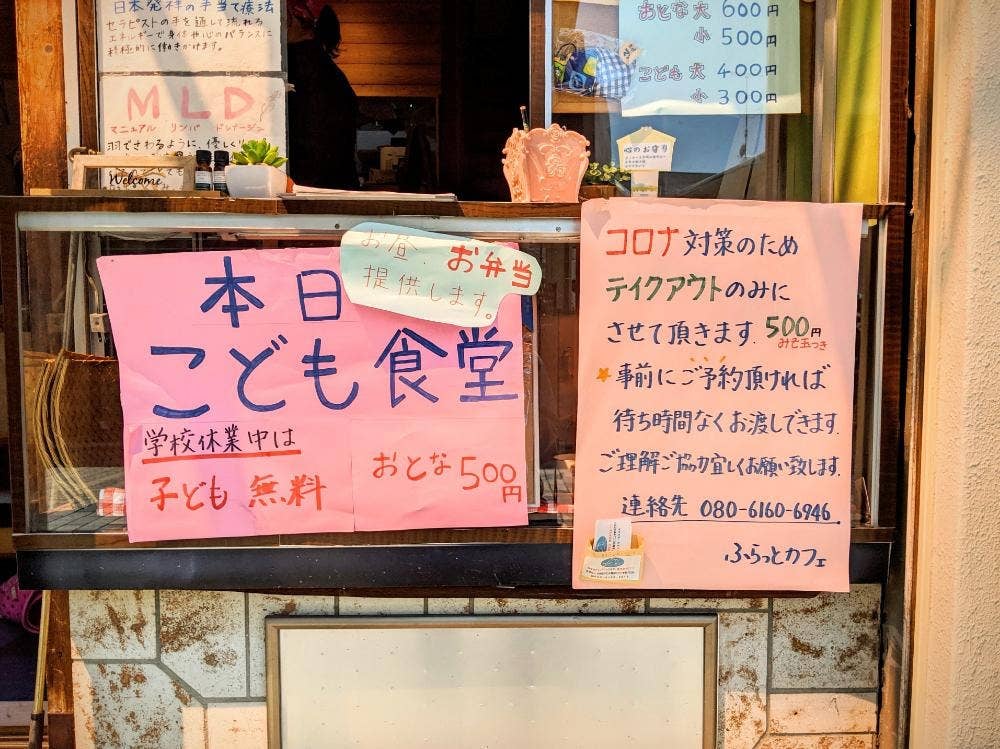 日本発祥の手当て療法
セラピストの手を通して流れる
エネルギーで身体や心のバランスに
働きかけます。
MLD
マニュアル リンパ ドレナージュ
羽でさわるように、優しく
Welcome
おとな大 600円
小 500円
こども大 400円
小 300円
心のお守り
お昼、お弁当
提供します。
本日
こども食堂
学校休業中は
子ども 無料
おとな500円
コロナ対策のため
テイクアウトのみに
させて頂きます 500円
みそ玉つき
★事前にご予約頂ければ
待ち時間なくお渡しできます.
ご理解ご協力宜しくお願い致します.
連絡先 080-6160-6946
ふらっとカフェ